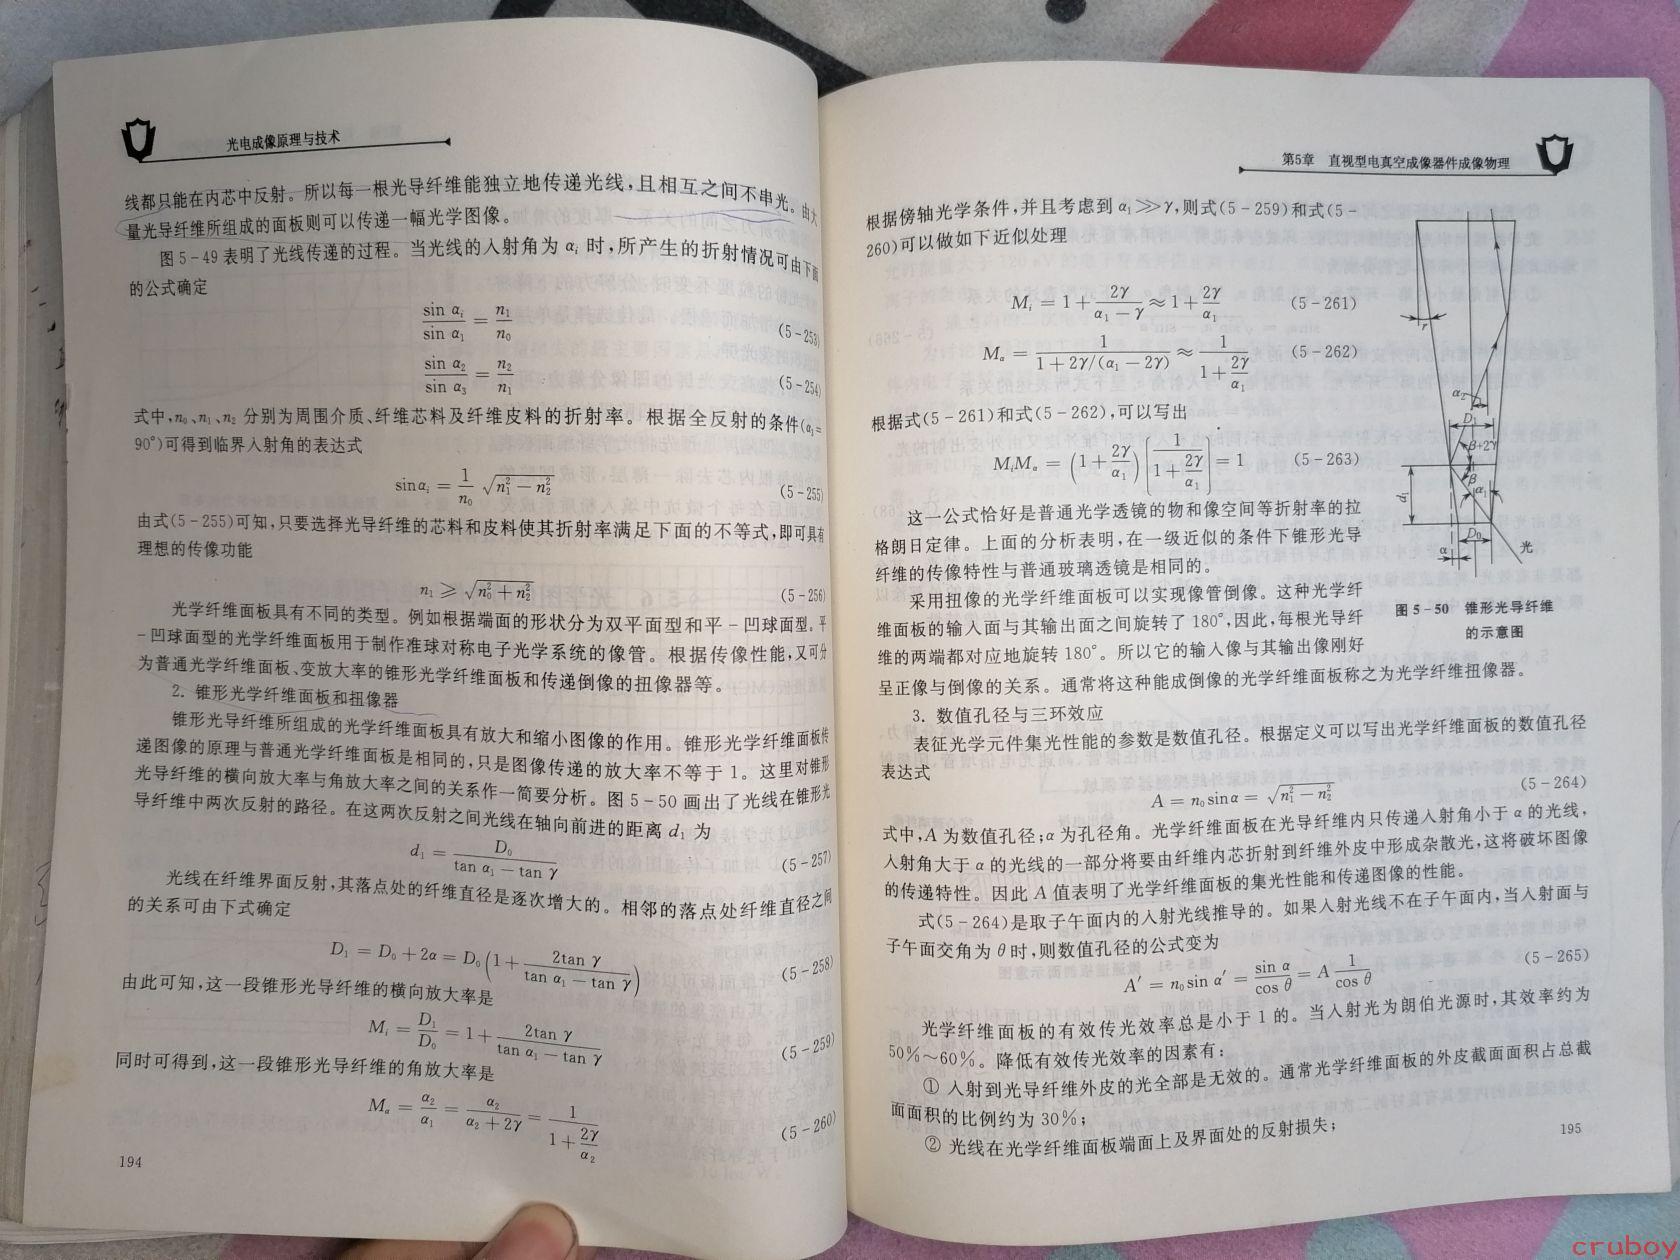 光电成像原理与技术
线都只能在内芯中反射。所以每一根光导纤维能独立地传递光线,且相互之间不串光。由大
量光导纤维所组成的面板则可以传递一幅光学图像。
图5-49表明了光线传递的过程。当光线的入射角为 αi 时,所产生的折射情况可由下面
的公式确定
sin αi / sin α1 = n1 / n0 (5-253)
sin α2 / sin α3 = n2 / n1 (5-254)
式中,n0、n1、n2 分别为周围介质、纤维芯料及纤维皮料的折射率。根据全反射的条件(α3=
90°)可得到临界入射角的表达式
sinαi = 1/n0 √(n1² − n2²) (5-255)
由式(5-255)可知,只要选择光导纤维的芯料和皮料使其折射率满足下面的不等式,即可具有
理想的传像功能
n1 ⩾ √(n0² + n2²) (5-256)
光学纤维面板具有不同的类型。例如根据端面的形状分为双平面型和平-凹球面型。平
-凹球面型的光学纤维面板用于制作准球对称电子光学系统的像管。根据传像性能,又可分
为普通光学纤维面板、变放大率的锥形光学纤维面板和传递倒像的扭像器等。
2. 锥形光学纤维面板和扭像器
锥形光导纤维所组成的光学纤维面板具有放大和缩小图像的作用。锥形光学纤维面板传
递图像的原理与普通光学纤维面板是相同的,只是图像传递的放大率不等于1。这里对锥形
光导纤维的横向放大率与角放大率之间的关系作一简要分析。图5-50画出了光线在锥形光
导纤维中两次反射的路径。在这两次反射之间光线在轴向前进的距离 d1 为
d1 = D0 / (tan α1 − tan γ) (5-257)
光线在纤维界面反射,其落点处的纤维直径是逐次增大的。相邻的落点处纤维直径之间
的关系可由下式确定
D1 = D0 + 2α = D0 (1 + 2tan γ / (tan α1 − tan γ)) (5-258)
由此可知,这一段锥形光导纤维的横向放大率是
Mi = D1 / D0 = 1 + 2tan γ / (tan α1 − tan γ) (5-259)
同时可得到,这一段锥形光导纤维的角放大率是
Mα = α2 / α1 = α2 / (α2 + 2γ) = 1 / (1 + 2γ/α2) (5-260)
194
第5章 直视型电真空成像器件成像物理
根据傍轴光学条件,并且考虑到 α1≫γ,则式(5-259)和式(5-
260)可以做如下近似处理
Mi = 1 + 2γ / (α1 − γ) ≈ 1 + 2γ/α1 (5-261)
Mα = 1 / (1 + 2γ/(α1 − 2γ)) ≈ 1 / (1 + 2γ/α1) (5-262)
根据式(5-261)和式(5-262),可以写出
MiMα = (1 + 2γ/α1) [1 / (1 + 2γ/α1)] = 1 (5-263)
这一公式恰好是普通光学透镜的物和像空间等折射率的拉
格朗日定律。上面的分析表明,在一级近似的条件下锥形光导
纤维的传像特性与普通玻璃透镜是相同的。
采用扭像的光学纤维面板可以实现像管倒像。这种光学纤
维面板的输入面与其输出面之间旋转了180°,因此,每根光导纤
维的两端都对应地旋转180°。所以它的输入像与其输出像刚好
呈正像与倒像的关系。通常将这种能成倒像的光学纤维面板称之为光学纤维扭像器。
r
α2
D1
β+2γ
β
α1
d1
D0
α
光
图5-50 锥形光导纤维
的示意图
3. 数值孔径与三环效应
表征光学元件集光性能的参数是数值孔径。根据定义可以写出光学纤维面板的数值孔径
表达式
A = n0 sinα = √(n1² − n2²) (5-264)
式中,A 为数值孔径;α 为孔径角。光学纤维面板在光导纤维内只传递入射角小于 α 的光线,
入射角大于 α 的光线的一部分将要由纤维内芯折射到纤维外皮中形成杂散光,这将破坏图像
的传递特性。因此 A 值表明了光学纤维面板的集光性能和传递图像的性能。
式(5-264)是取子午面内的入射光线推导的。如果入射光线不在子午面内,当入射面与
子午面交角为 θ 时,则数值孔径的公式变为
A′ = n0 sin α′ = sin α / cos θ = A 1 / cos θ (5-265)
光学纤维面板的有效传光效率总是小于1的。当入射光为朗伯光源时,其效率约为
50%~60%。降低有效传光效率的因素有:
① 入射到光导纤维外皮的光全部是无效的。通常光学纤维面板的外皮截面面积占总截
面面积的比例约为30%;
② 光线在光学纤维面板端面上及界面处的反射损失;
195
cruboy